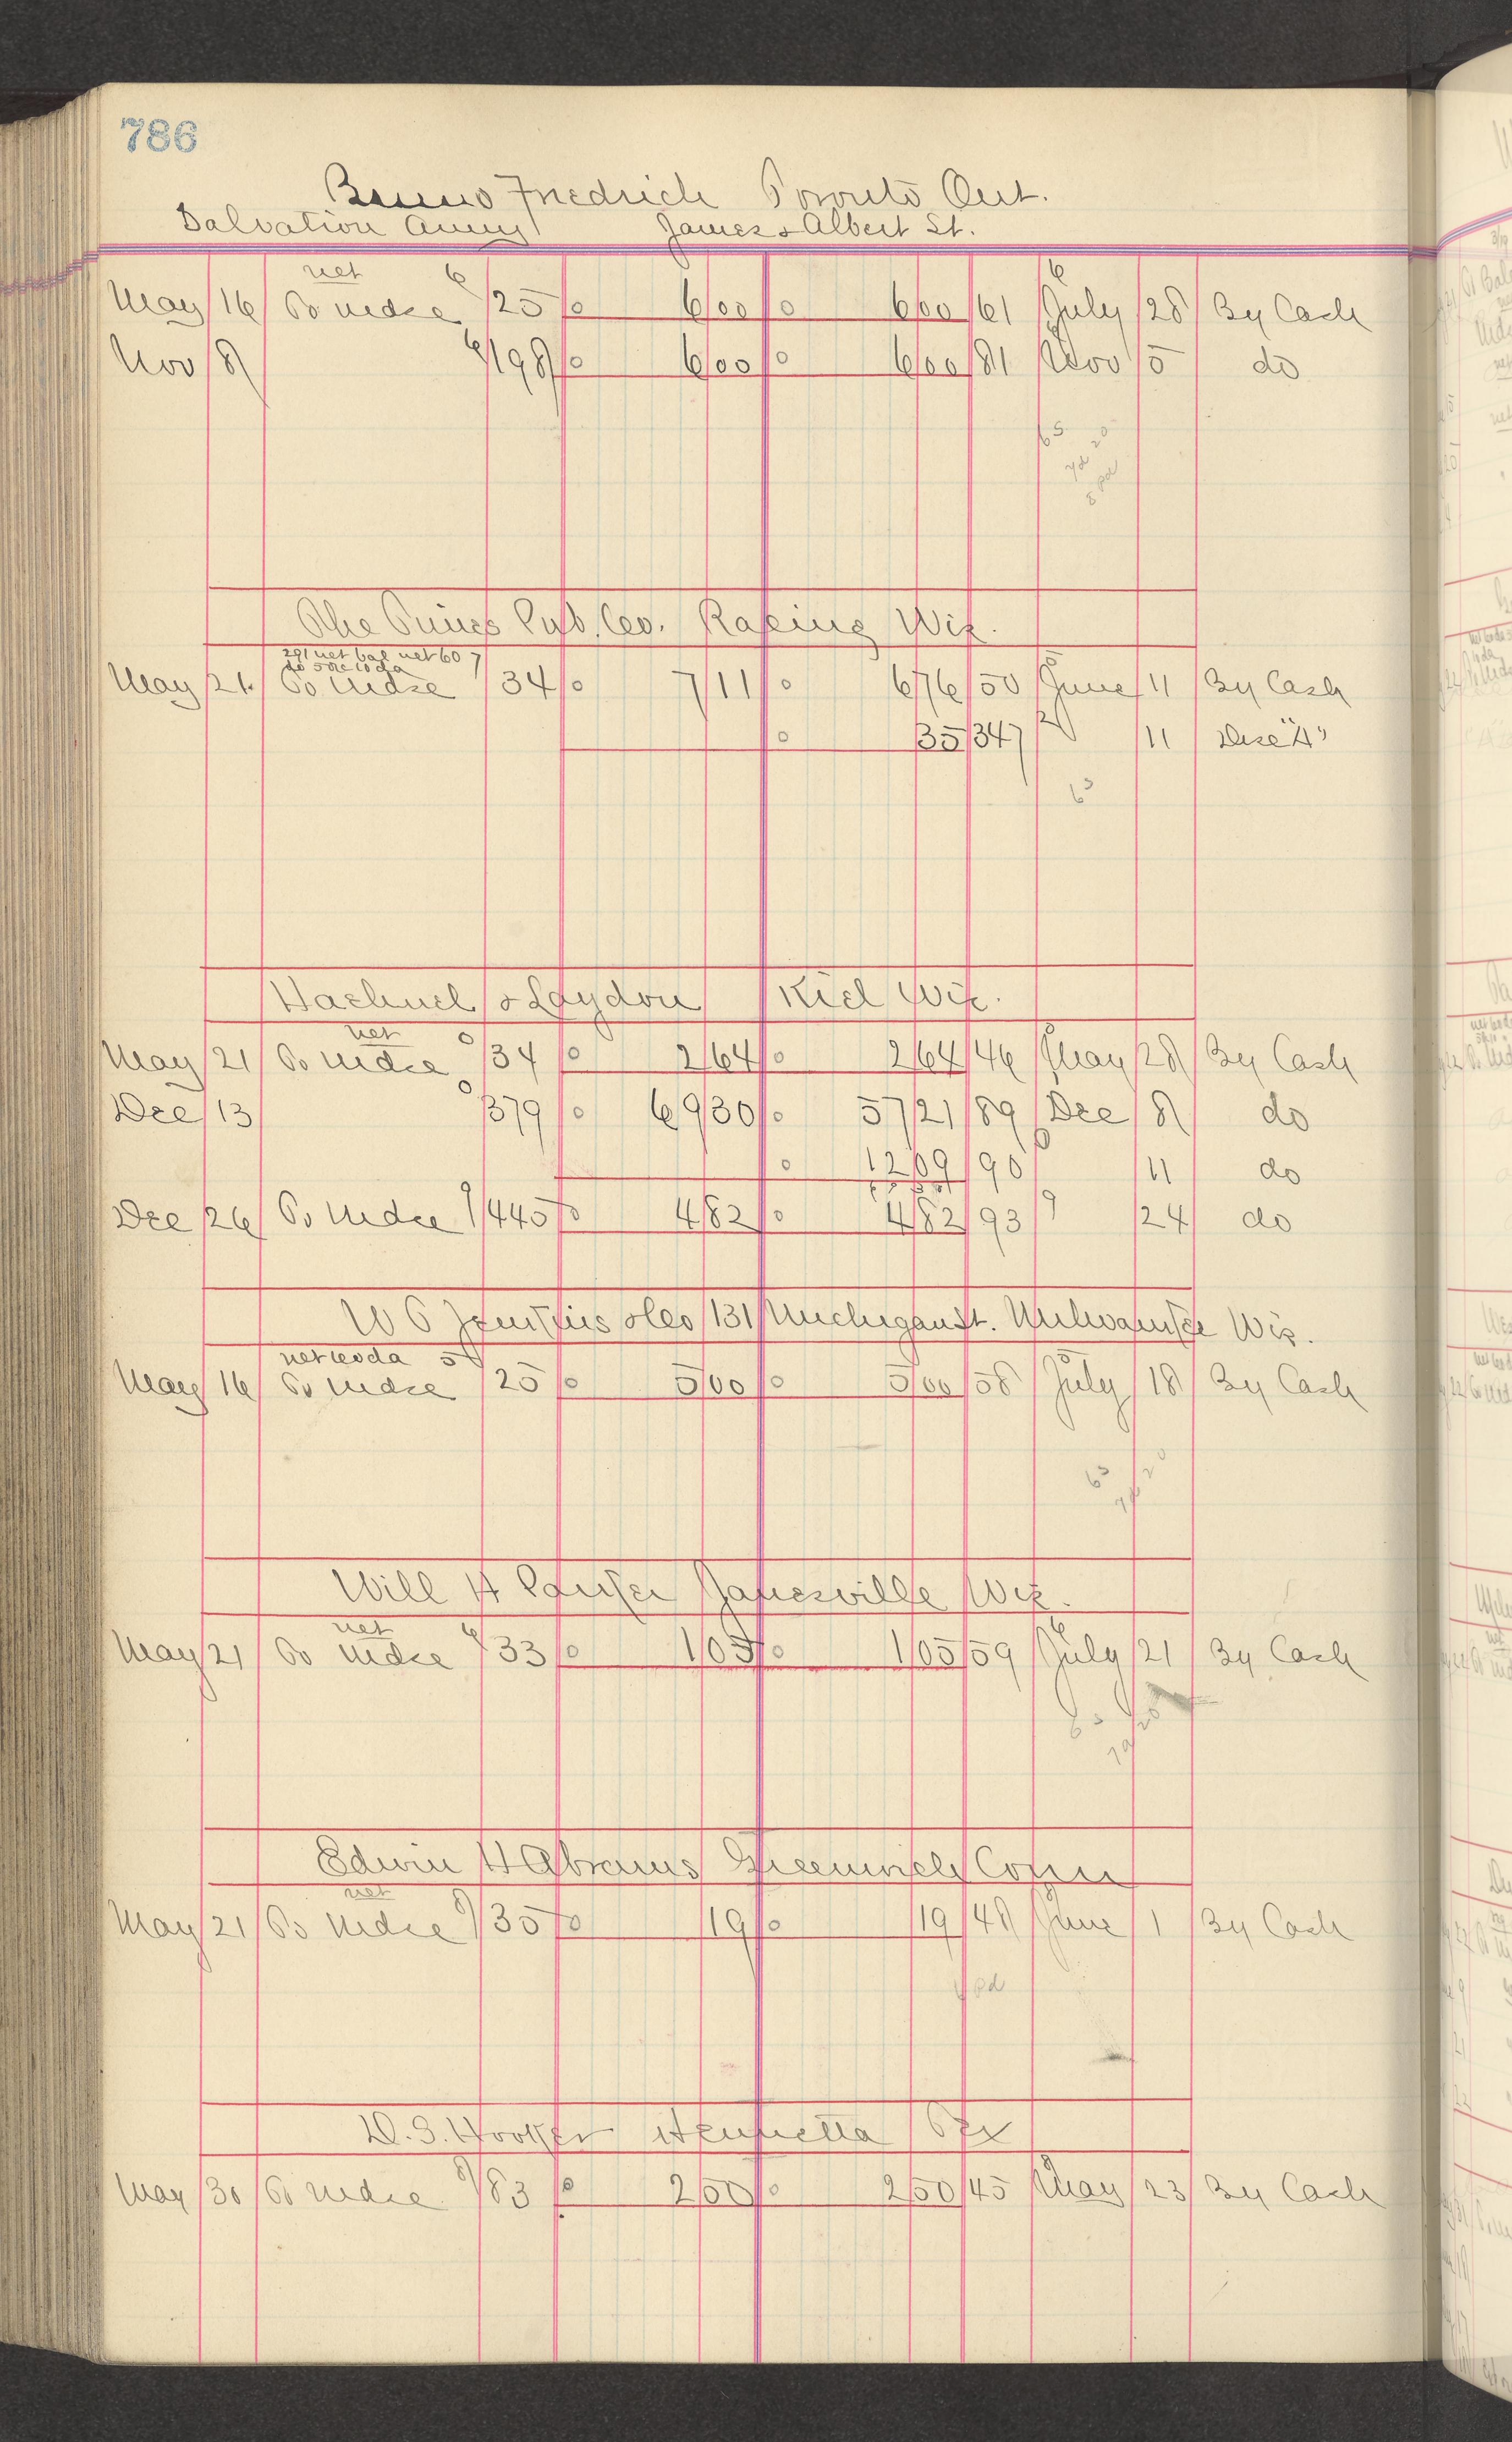 786
Bruno Friedrich Toronto Ont.
Salvation Army James & Albert St.
net 6 6
May 16 To Mdse 25 600 600 61 July 28 By Cash
Nov 8 6 198 600 600 81 Nov 5 do
The Times Pub. Co. Racine Wis.
291 net bal net 60 7
May 21 To Mdse 34 711 676 50 June 11 By Cash
35 347 11 Disc "A"
63
& Laydon Kiel Wis.
net
May 21 To Mdse 34 264 264 46 May 28 By Cash
Dec 13 379 6930 5721 89 Dec 8 do
1209 90 11 do
Dec 26 To Mdse 9 445 482 482 93 9 24 do
& Co 131 Michigan St. Milwaukee Wis.
May 16 To Mdse 25 500 500 58 July 18 By Cash
Will H Janesville Wis.
net 6
May 21 To Mdse 33 105 105 59 July 21 By Cash
Edwin H Abrams Greenwich Conn
net
May 21 To Mdse 8 35 19 19 48 June 1 By Cash
pd
D. S. Hooker Henrietta Tex
May 30 To Mdse 8 83 250 250 45 May 23 By Cash